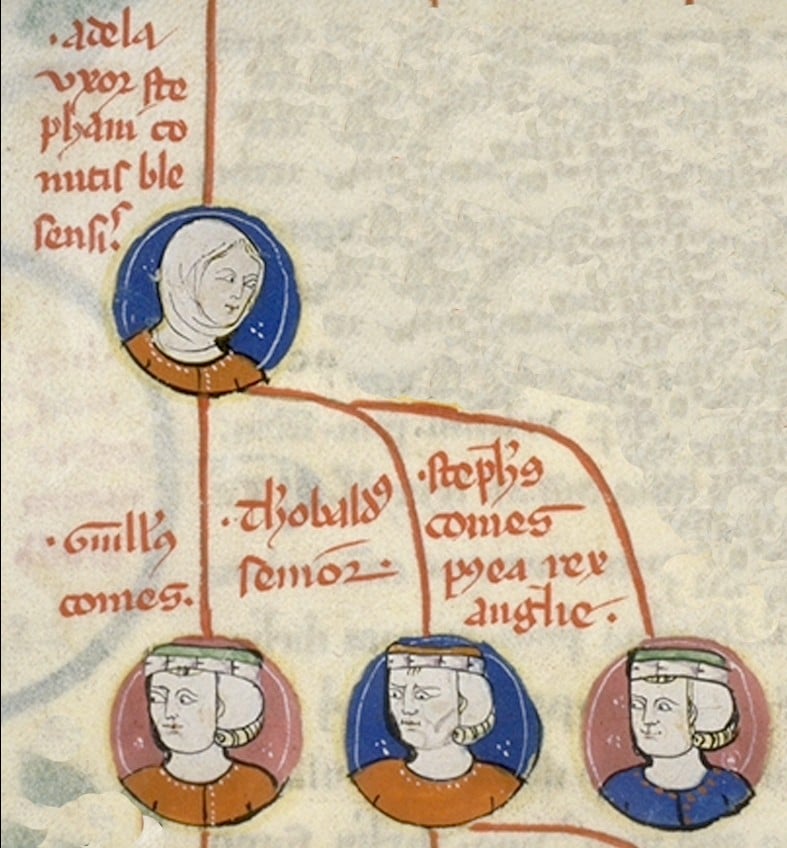 ·adela
vxor ste
phani co
mitis ble
sensis.
·Guillꝰs
comes.
·Thobaldꝰ
senior·
·stephꝰs
comes
pꝰea rex
anglie·